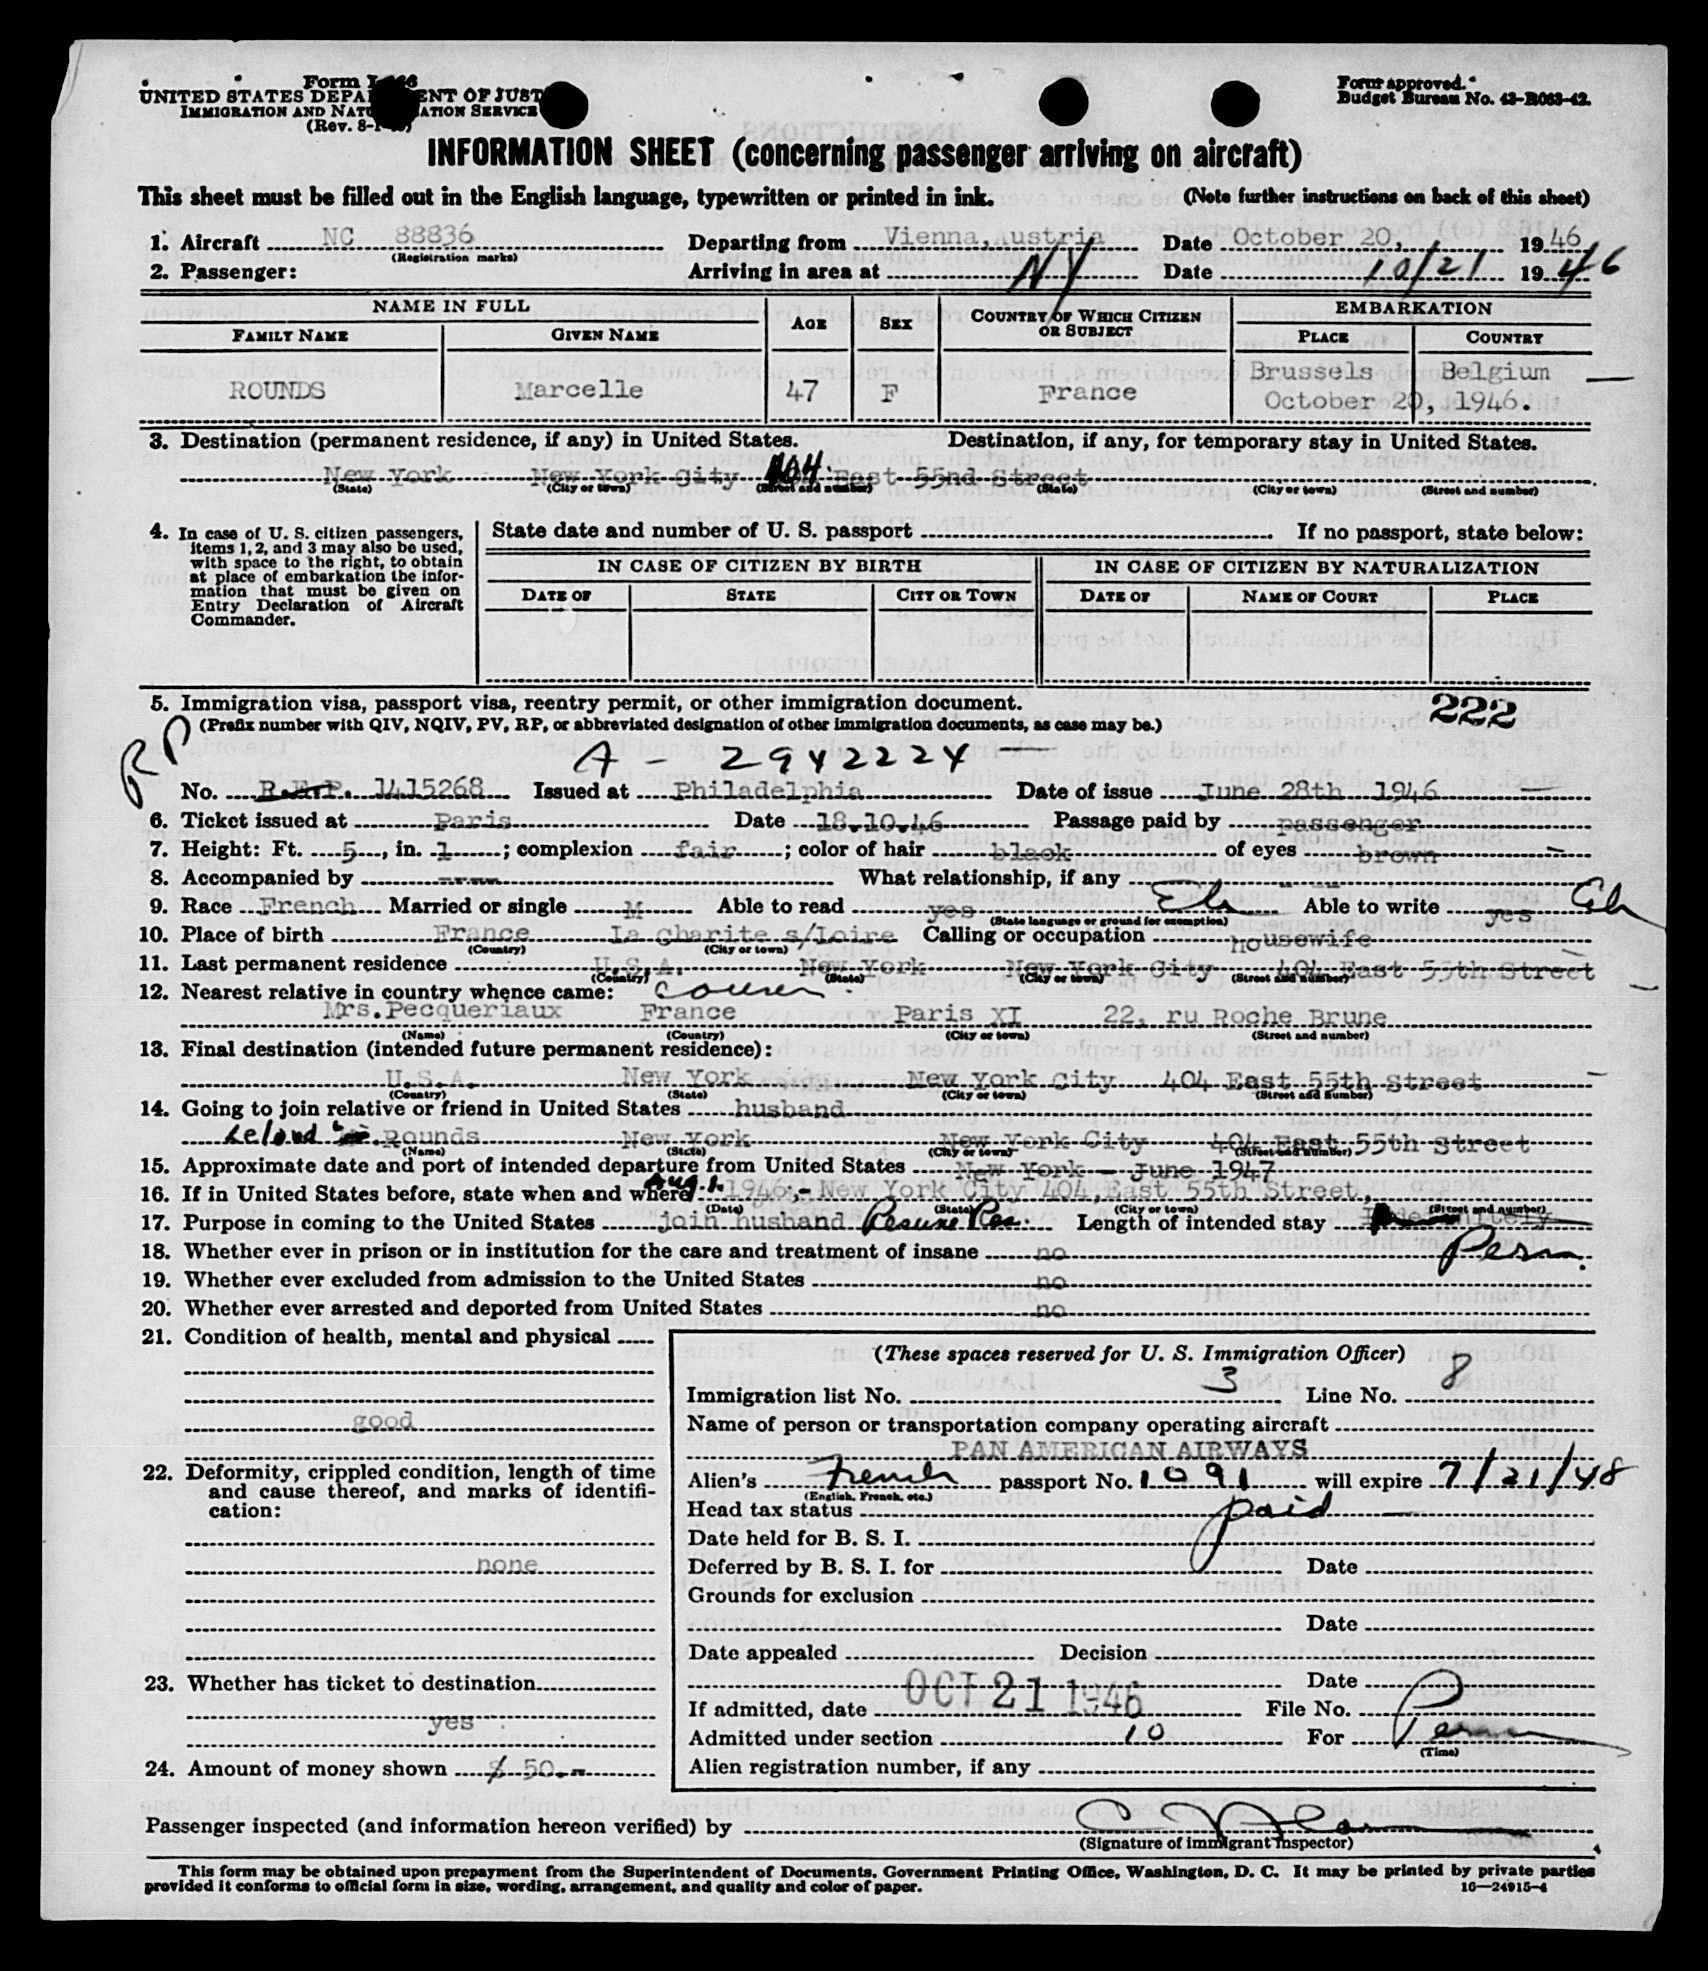 Form I-466
UNITED STATES DEPARTMENT OF JUSTICE
IMMIGRATION AND NATURALIZATION SERVICE
(Rev. 8-1-
Form approved.
Budget Bureau No. 43-R063-42.
INFORMATION SHEET (concerning passenger arriving on aircraft)
This sheet must be filled out in the English language, typewritten or printed in ink. (Note further instructions on back of this sheet)
1. Aircraft NC 88836 Departing from Vienna, Austria Date October 20, 1946
(Registration marks)
2. Passenger: Arriving in area at NY Date 10/21 1946
NAME IN FULL AGE SEX COUNTRY OF WHICH CITIZEN OR SUBJECT EMBARKATION
FAMILY NAME GIVEN NAME PLACE COUNTRY
ROUNDS Marcelle 47 F France Brussels Belgium
October 20, 1946.
3. Destination (permanent residence, if any) in United States. Destination, if any, for temporary stay in United States.
New York New York City 404 East 55nd Street
(State) (City or town) (Street and number) (State) (City or town) (Street and number)
4. In case of U. S. citizen passengers, items 1, 2, and 3 may also be used, with space to the right, to obtain at place of embarkation the information that must be given on Entry Declaration of Aircraft Commander.
State date and number of U. S. passport If no passport, state below:
IN CASE OF CITIZEN BY BIRTH IN CASE OF CITIZEN BY NATURALIZATION
DATE OF STATE CITY OR TOWN DATE OF NAME OF COURT PLACE
5. Immigration visa, passport visa, reentry permit, or other immigration document. 222
(Prefix number with QIV, NQIV, PV, RP, or abbreviated designation of other immigration documents, as case may be.)
RP A - 2942224
No. R.E.P. 1415268 Issued at Philadelphia Date of issue June 28th 1946
6. Ticket issued at Paris Date 18.10.46 Passage paid by passenger
7. Height: Ft. 5, in. 1; complexion fair; color of hair black of eyes brown
8. Accompanied by ---- What relationship, if any -- --
9. Race French Married or single M Able to read yes Eh Able to write yes Eh
(State language or ground for exemption)
10. Place of birth France La Charite s/Loire Calling or occupation housewife
(Country) (City or town)
11. Last permanent residence U.S.A. New York New York City 404 East 55th Street
(Country) (State) (City or town) (Street and number)
12. Nearest relative in country whence came: cousin
Mrs. Pecqueriaux France Paris XI 22, ru Roche Brune
(Name) (Country) (City or town) (Street and number)
13. Final destination (intended future permanent residence):
U.S.A. New York New York City 404 East 55th Street
(Country) (State) (City or town) (Street and number)
14. Going to join relative or friend in United States husband
Leland Rounds New York New York City 404 East 55th Street
(Name) (State) (City or town) (Street and number)
15. Approximate date and port of intended departure from United States New York - June 1947
16. If in United States before, state when and where Aug. 1. 1946;- New York City 404, East 55th Street,
(Date) (State) (City or town) (Street and number)
17. Purpose in coming to the United States join husband Resume Res. Length of intended stay Indefinitely
Perm.
18. Whether ever in prison or in institution for the care and treatment of insane no
19. Whether ever excluded from admission to the United States no
20. Whether ever arrested and deported from United States no
21. Condition of health, mental and physical
good
22. Deformity, crippled condition, length of time and cause thereof, and marks of identification:
none
23. Whether has ticket to destination
yes
24. Amount of money shown $ 50.-
(These spaces reserved for U. S. Immigration Officer)
Immigration list No. 3 Line No. 8
Name of person or transportation company operating aircraft
PAN AMERICAN AIRWAYS
Alien's French passport No. 1091 will expire 7/21/48
(English, French, etc.)
Head tax status paid
Date held for B. S. I.
Deferred by B. S. I. for Date
Grounds for exclusion
Date
Date appealed Decision
Date
If admitted, date OCT 21 1946 File No.
Admitted under section 10 For Perm
(Time)
Alien registration number, if any
Passenger inspected (and information hereon verified) by
(Signature of immigrant inspector)
This form may be obtained upon prepayment from the Superintendent of Documents, Government Printing Office, Washington, D. C. It may be printed by private parties
provided it conforms to official form in size, wording, arrangement, and quality and color of paper. 16—24915-4